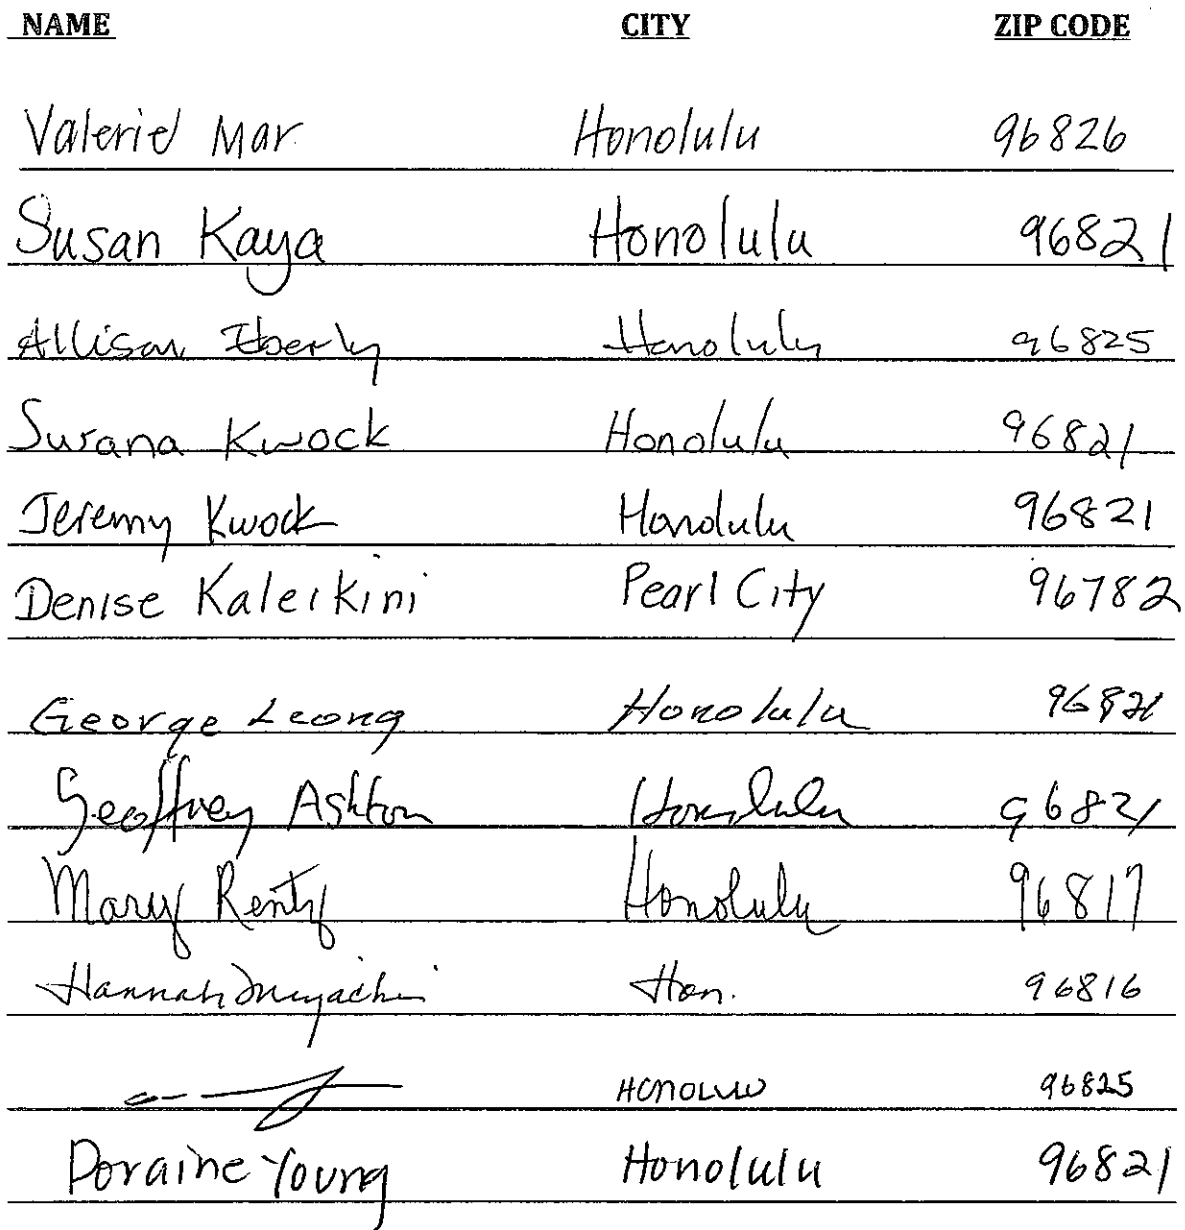 NAME CITY ZIP CODE
Valerie Mar Honolulu 96826
Susan Kaya Honolulu 96821
Allison Eberly Honolulu 96825
Susana Kwock Honolulu 96821
Jeremy Kwock Honolulu 96821
Denise Kaleikini Pearl City 96782
George Leong Honolulu 96821
Geoffrey Ashton Honolulu 96821
Mary Rentz Honolulu 96817
Hannah Miyachi Hon. 96816
Honolulu 96825
Doraine Young Honolulu 96821